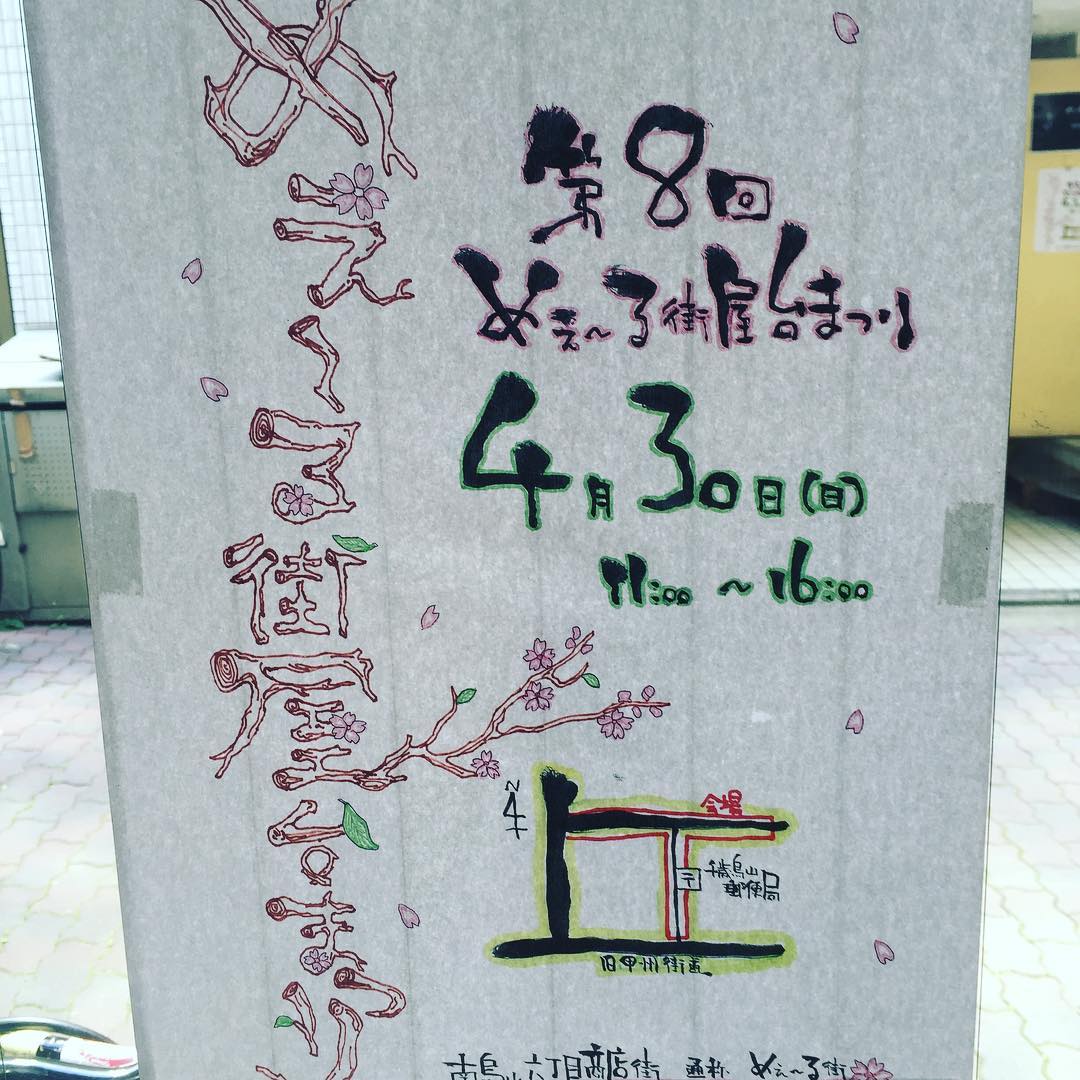 めぇ〜る街屋台まつ
第8回
めぇ〜る街屋台まつり
4月30日(日)
11:00 〜 16:00
N
会場
〒
千歳烏山
郵便局
旧甲州街道
南烏山六丁目商店街 通称 めぇ〜る街